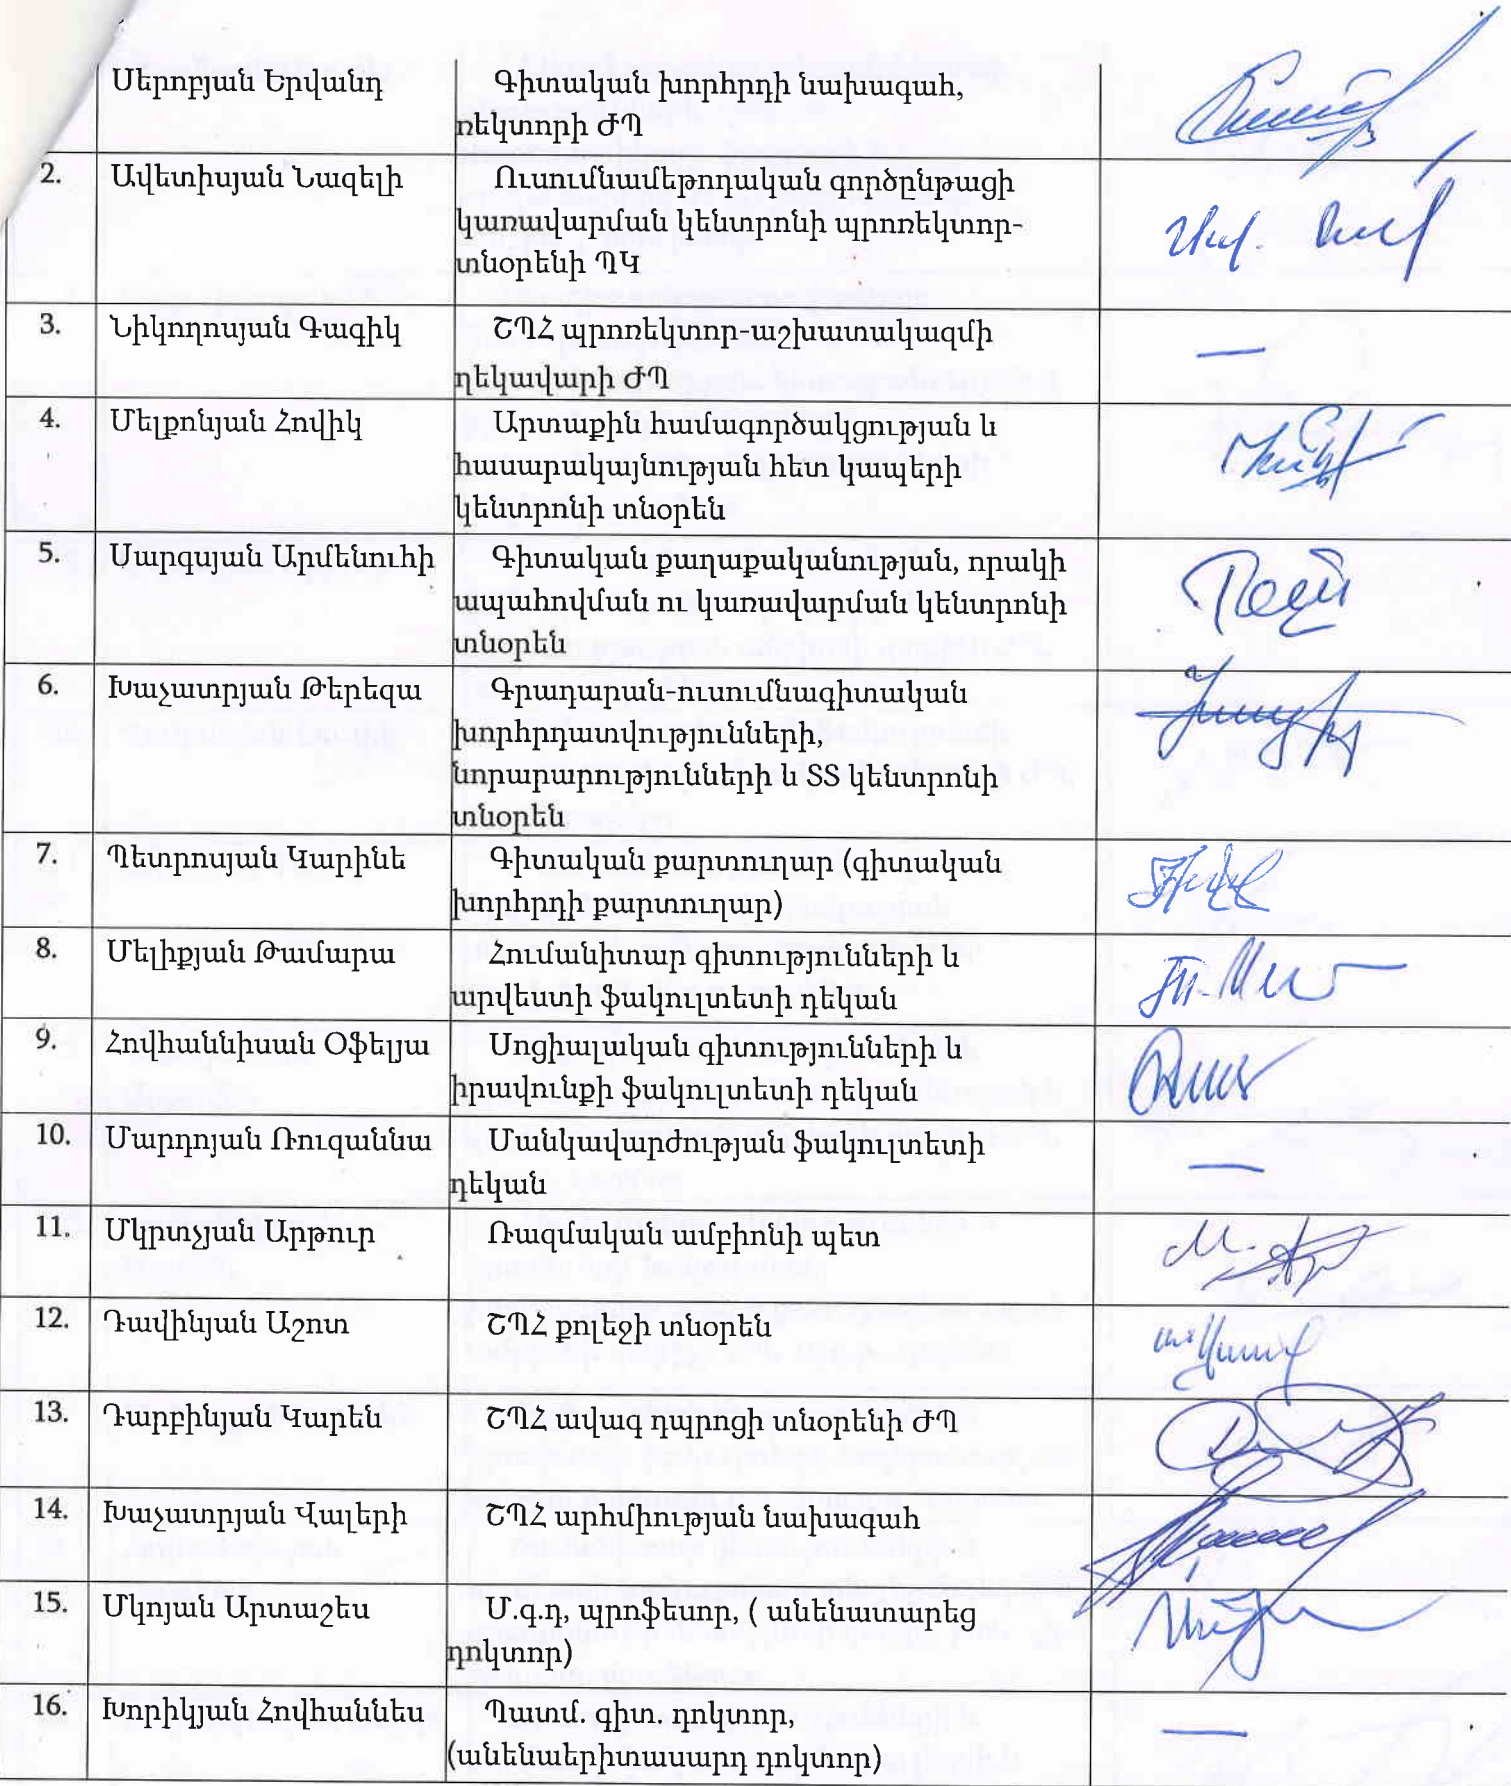 Սերոբյան Երվանդ Գիտական խորհրդի նախագահ,
ռեկտորի ԺՊ
2. Ավետիսյան Նազելի Ուսումնամեթոդական գործընթացի
կառավարման կենտրոնի պրոռեկտոր-
տնօրենի ՊԿ
3. Նիկողոսյան Գագիկ ՇՊՀ պրոռեկտոր-աշխատակազմի
ղեկավարի ԺՊ
4. Մելքոնյան Հովիկ Արտաքին համագործակցության և
հասարակայնության հետ կապերի
կենտրոնի տնօրեն
5. Սարգսյան Արմենուհի Գիտական քաղաքականության, որակի
ապահովման ու կառավարման կենտրոնի
տնօրեն
6. Խաչատրյան Թերեզա Գրադարան-ուսումնագիտական
խորհրդատվությունների,
նորարարությունների և ՏՏ կենտրոնի
տնօրեն
7. Պետրոսյան Կարինե Գիտական քարտուղար (գիտական
խորհրդի քարտուղար)
8. Մելիքյան Թամարա Հումանիտար գիտությունների և
արվեստի ֆակուլտետի դեկան
9. Հովհաննիսան Օֆելյա Սոցիալական գիտությունների և
իրավունքի ֆակուլտետի դեկան
10. Մարդոյան Ռուզաննա Մանկավարժության ֆակուլտետի
դեկան
11. Մկրտչյան Արթուր Ռազմական ամբիոնի պետ
12. Դավինյան Աշոտ ՇՊՀ քոլեջի տնօրեն
13. Դարբինյան Կարեն ՇՊՀ ավագ դպրոցի տնօրենի ԺՊ
14. Խաչատրյան Վալերի ՇՊՀ արհմիության նախագահ
15. Մկոյան Արտաշես Մ.գ.դ, պրոֆեսոր, ( անենատարեց
դոկտոր)
16. Խորիկյան Հովհաննես Պատմ. գիտ. դոկտոր,
(անենաերիտասարդ դոկտոր)